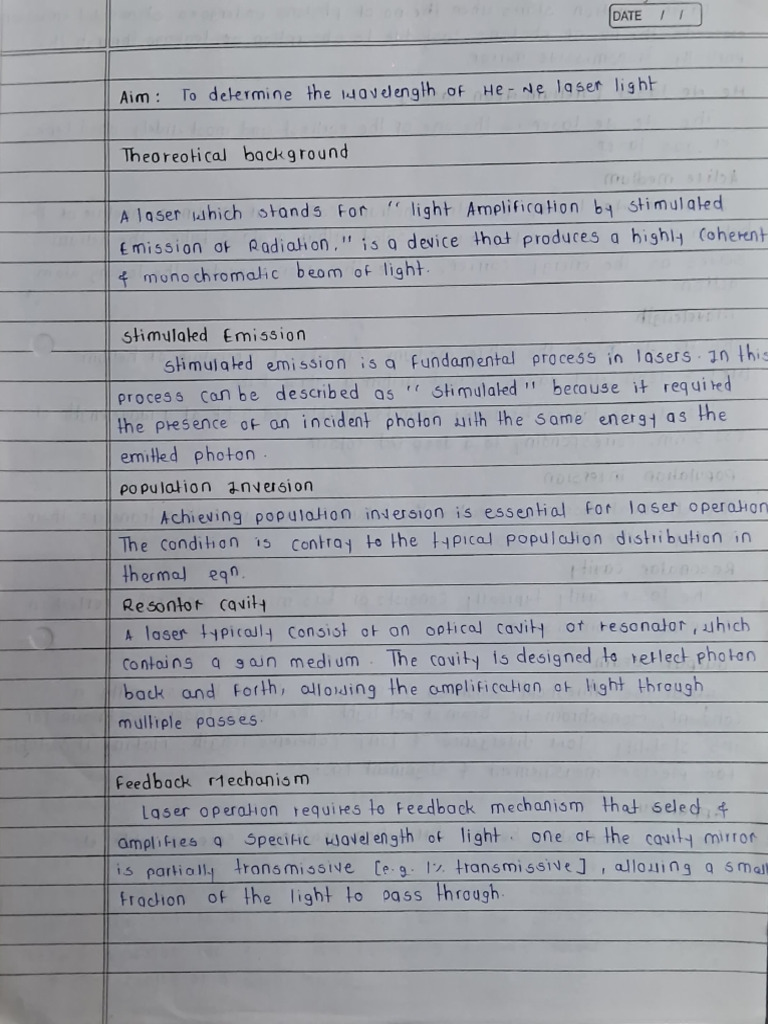 DATE / /
Aim: To determine the wavelength of He-Ne laser light
Theoreotical background
A laser which stands for "light Amplification by stimulated
Emission of Radiation." is a device that produces a highly Coherent
& monochromatic beam of light.
Stimulated Emission
Stimulated emission is a fundamental process in lasers. In this
process can be described as "stimulated" because it required
the presence of an incident photon with the same energy as the
emitted photon.
Population Inversion
Achieving population inversion is essential for laser operation
The condition is contray to the typical population distribution in
thermal eqn.
Resontor cavity
A laser typically consist of an optical cavity or resonator, which
contains a gain medium. The cavity is designed to reflect photon
back and forth, allowing the amplification of light through
multiple passes.
Feedback Mechanism
Laser operation requires to feedback mechanism that select &
amplifies a specific wavelength of light. one of the cavity mirror
is partially transmissive [e.g. 1% transmissive], allowing a small
fraction of the light to pass through.